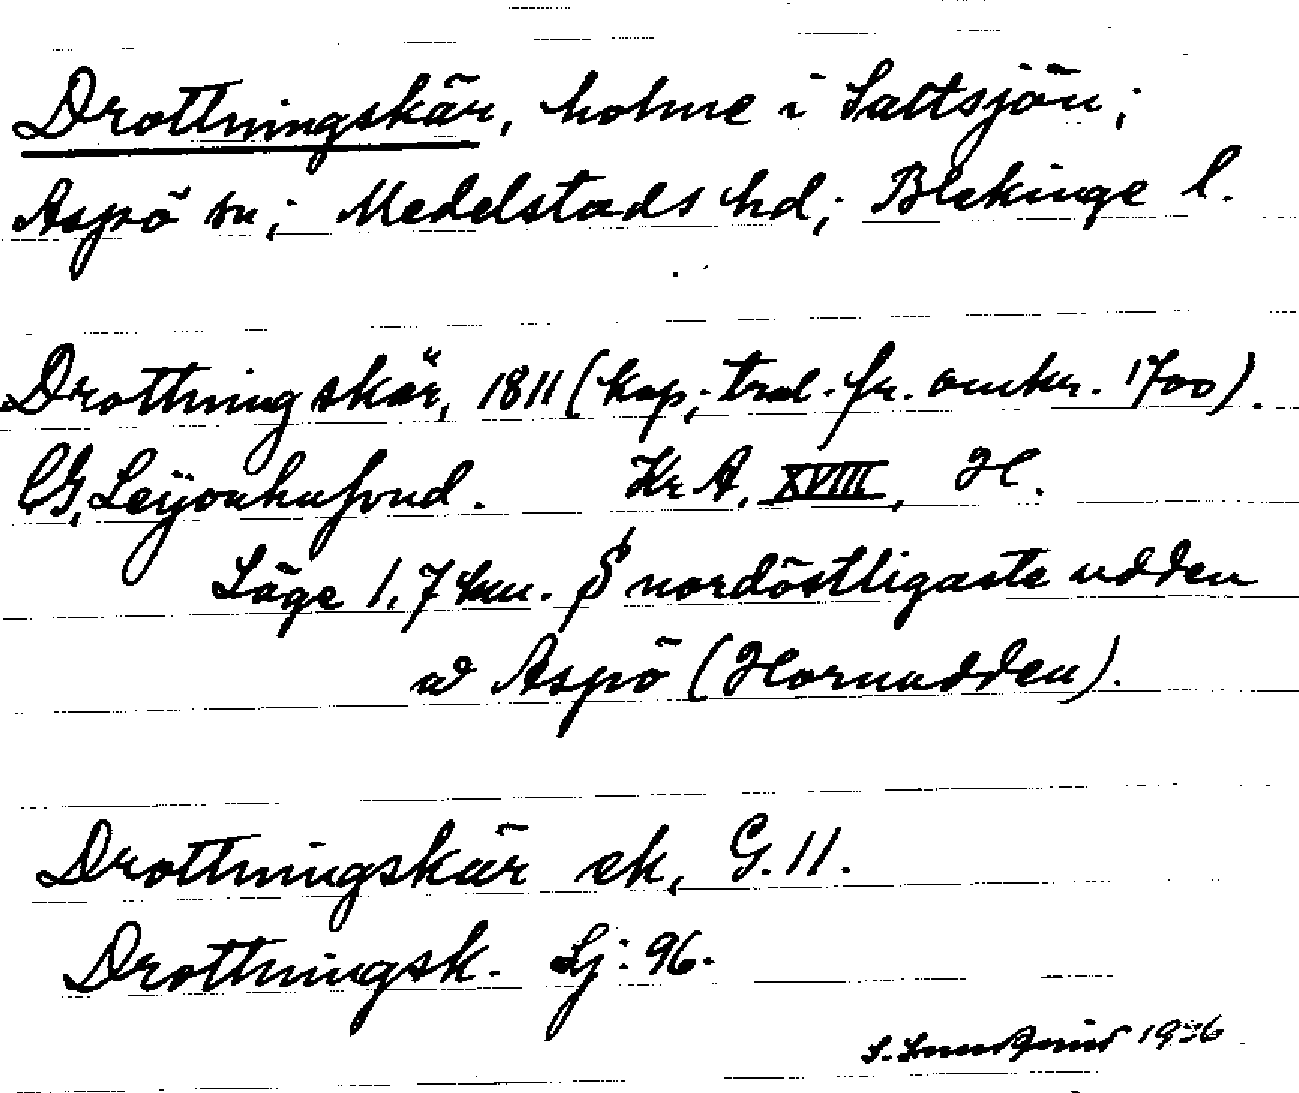 Drottningskär, holme i Saltsjön;
Aspö sn; Medelstads hd; Blekinge l.
Drottningskär, 1811 (kop; trol. fr. omkr. 1700).
CG, Leÿonhufvud. Kr A, XVIII, H.
Läge 1,7 km. S nordöstligaste udden
av Aspö (Hornudden).
Drottningskär ek, G. 11.
Drottningsk. Sj: 96.
S. 1936